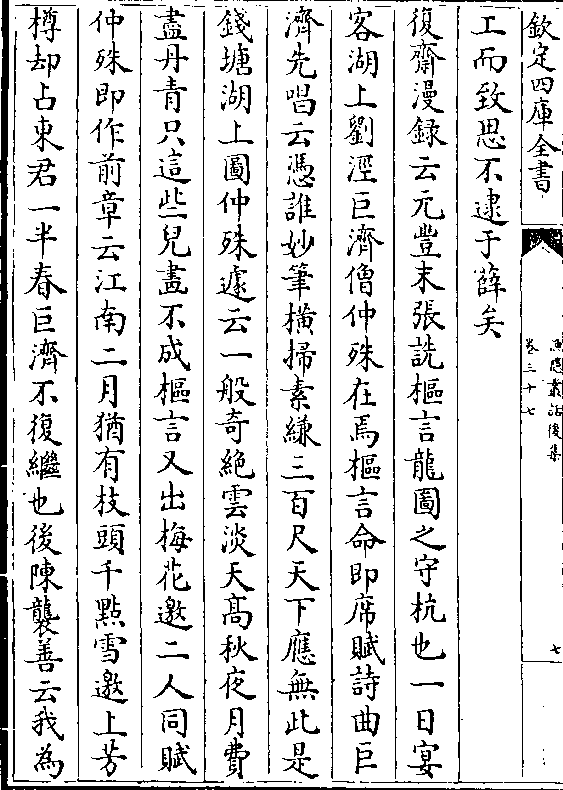 欽定四庫全書
漁隱叢話後集
卷三十七
七
工而致思不逮于薛矣
復齋漫録云元豐末張詵樞言龍圖之守杭也一日宴
客湖上劉涇巨濟僧仲殊在焉樞言命即席賦詩曲巨
濟先唱云憑誰妙筆横掃素縑三百尺天下應無此是
錢塘湖上圖仲殊遽云一般奇絶雲淡天髙秋夜月費
盡丹青只這些兒畫不成樞言又出梅花邀二人同賦
仲殊即作前章云江南二月猶有枝頭千點雪邀上芳
樽却占東君一半春巨濟不復繼也後陳襲善云我為